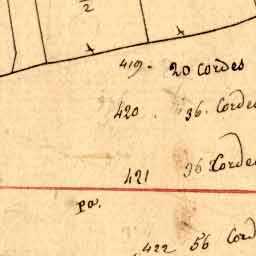 2
419. 20 Cordes
420. 36. Cordes
421 36 Cordes
po.
422 56 Cord